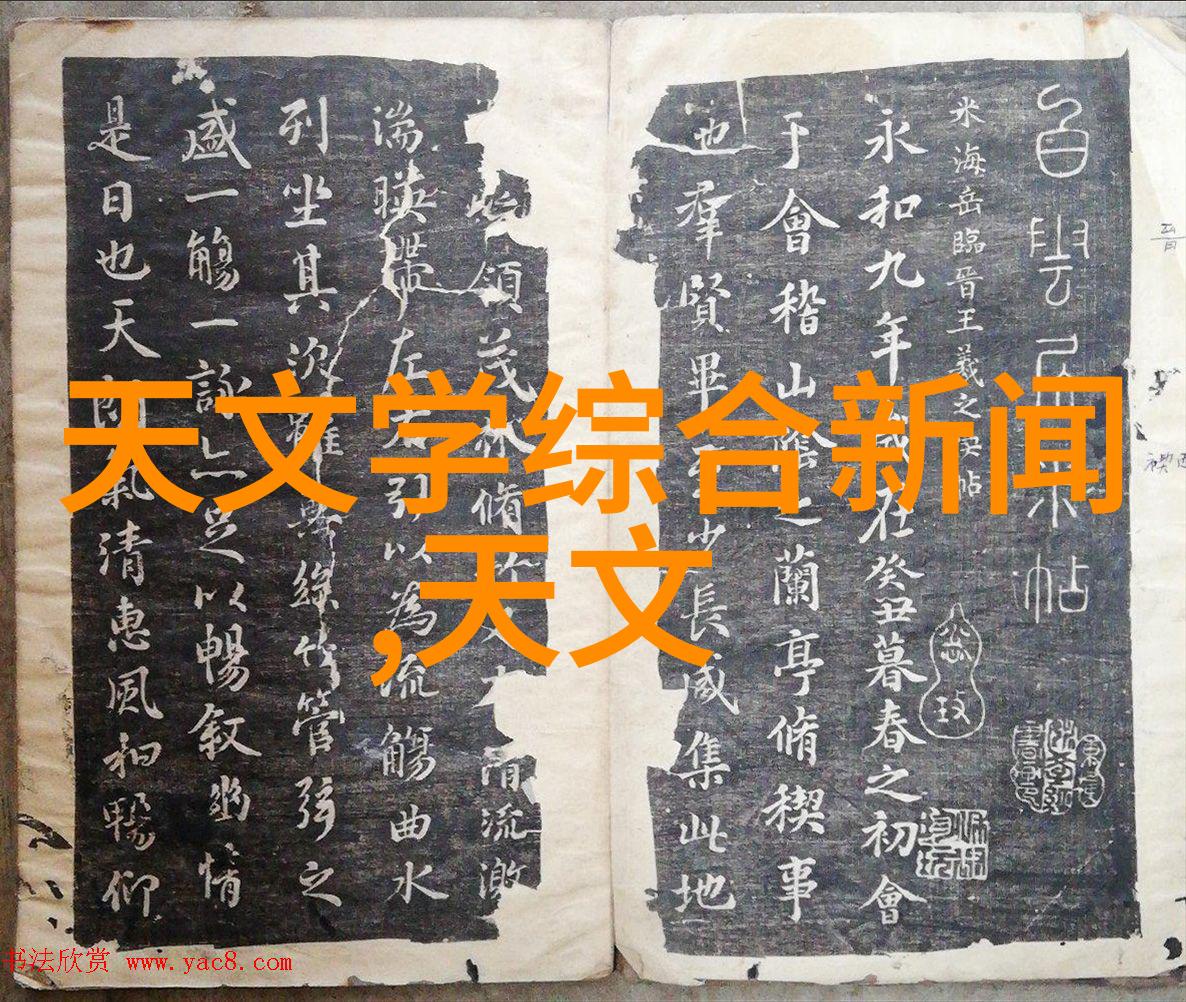 天文学综合新闻
,天文
白雲居米帖
米海岳臨晉王羲之禊帖
永和九年歲在癸丑暮春之初會
于會稽山陰之蘭亭脩禊事
也羣賢畢至少長咸集此地
領茂林脩竹又清流激
湍暎帶左右引以為流觴曲水
列坐其次雖無絲竹管弦之
盛一觴一詠亦足以暢敘幽情
是日也天朗氣清惠風和暢仰
书法欣赏 www.yac8.com